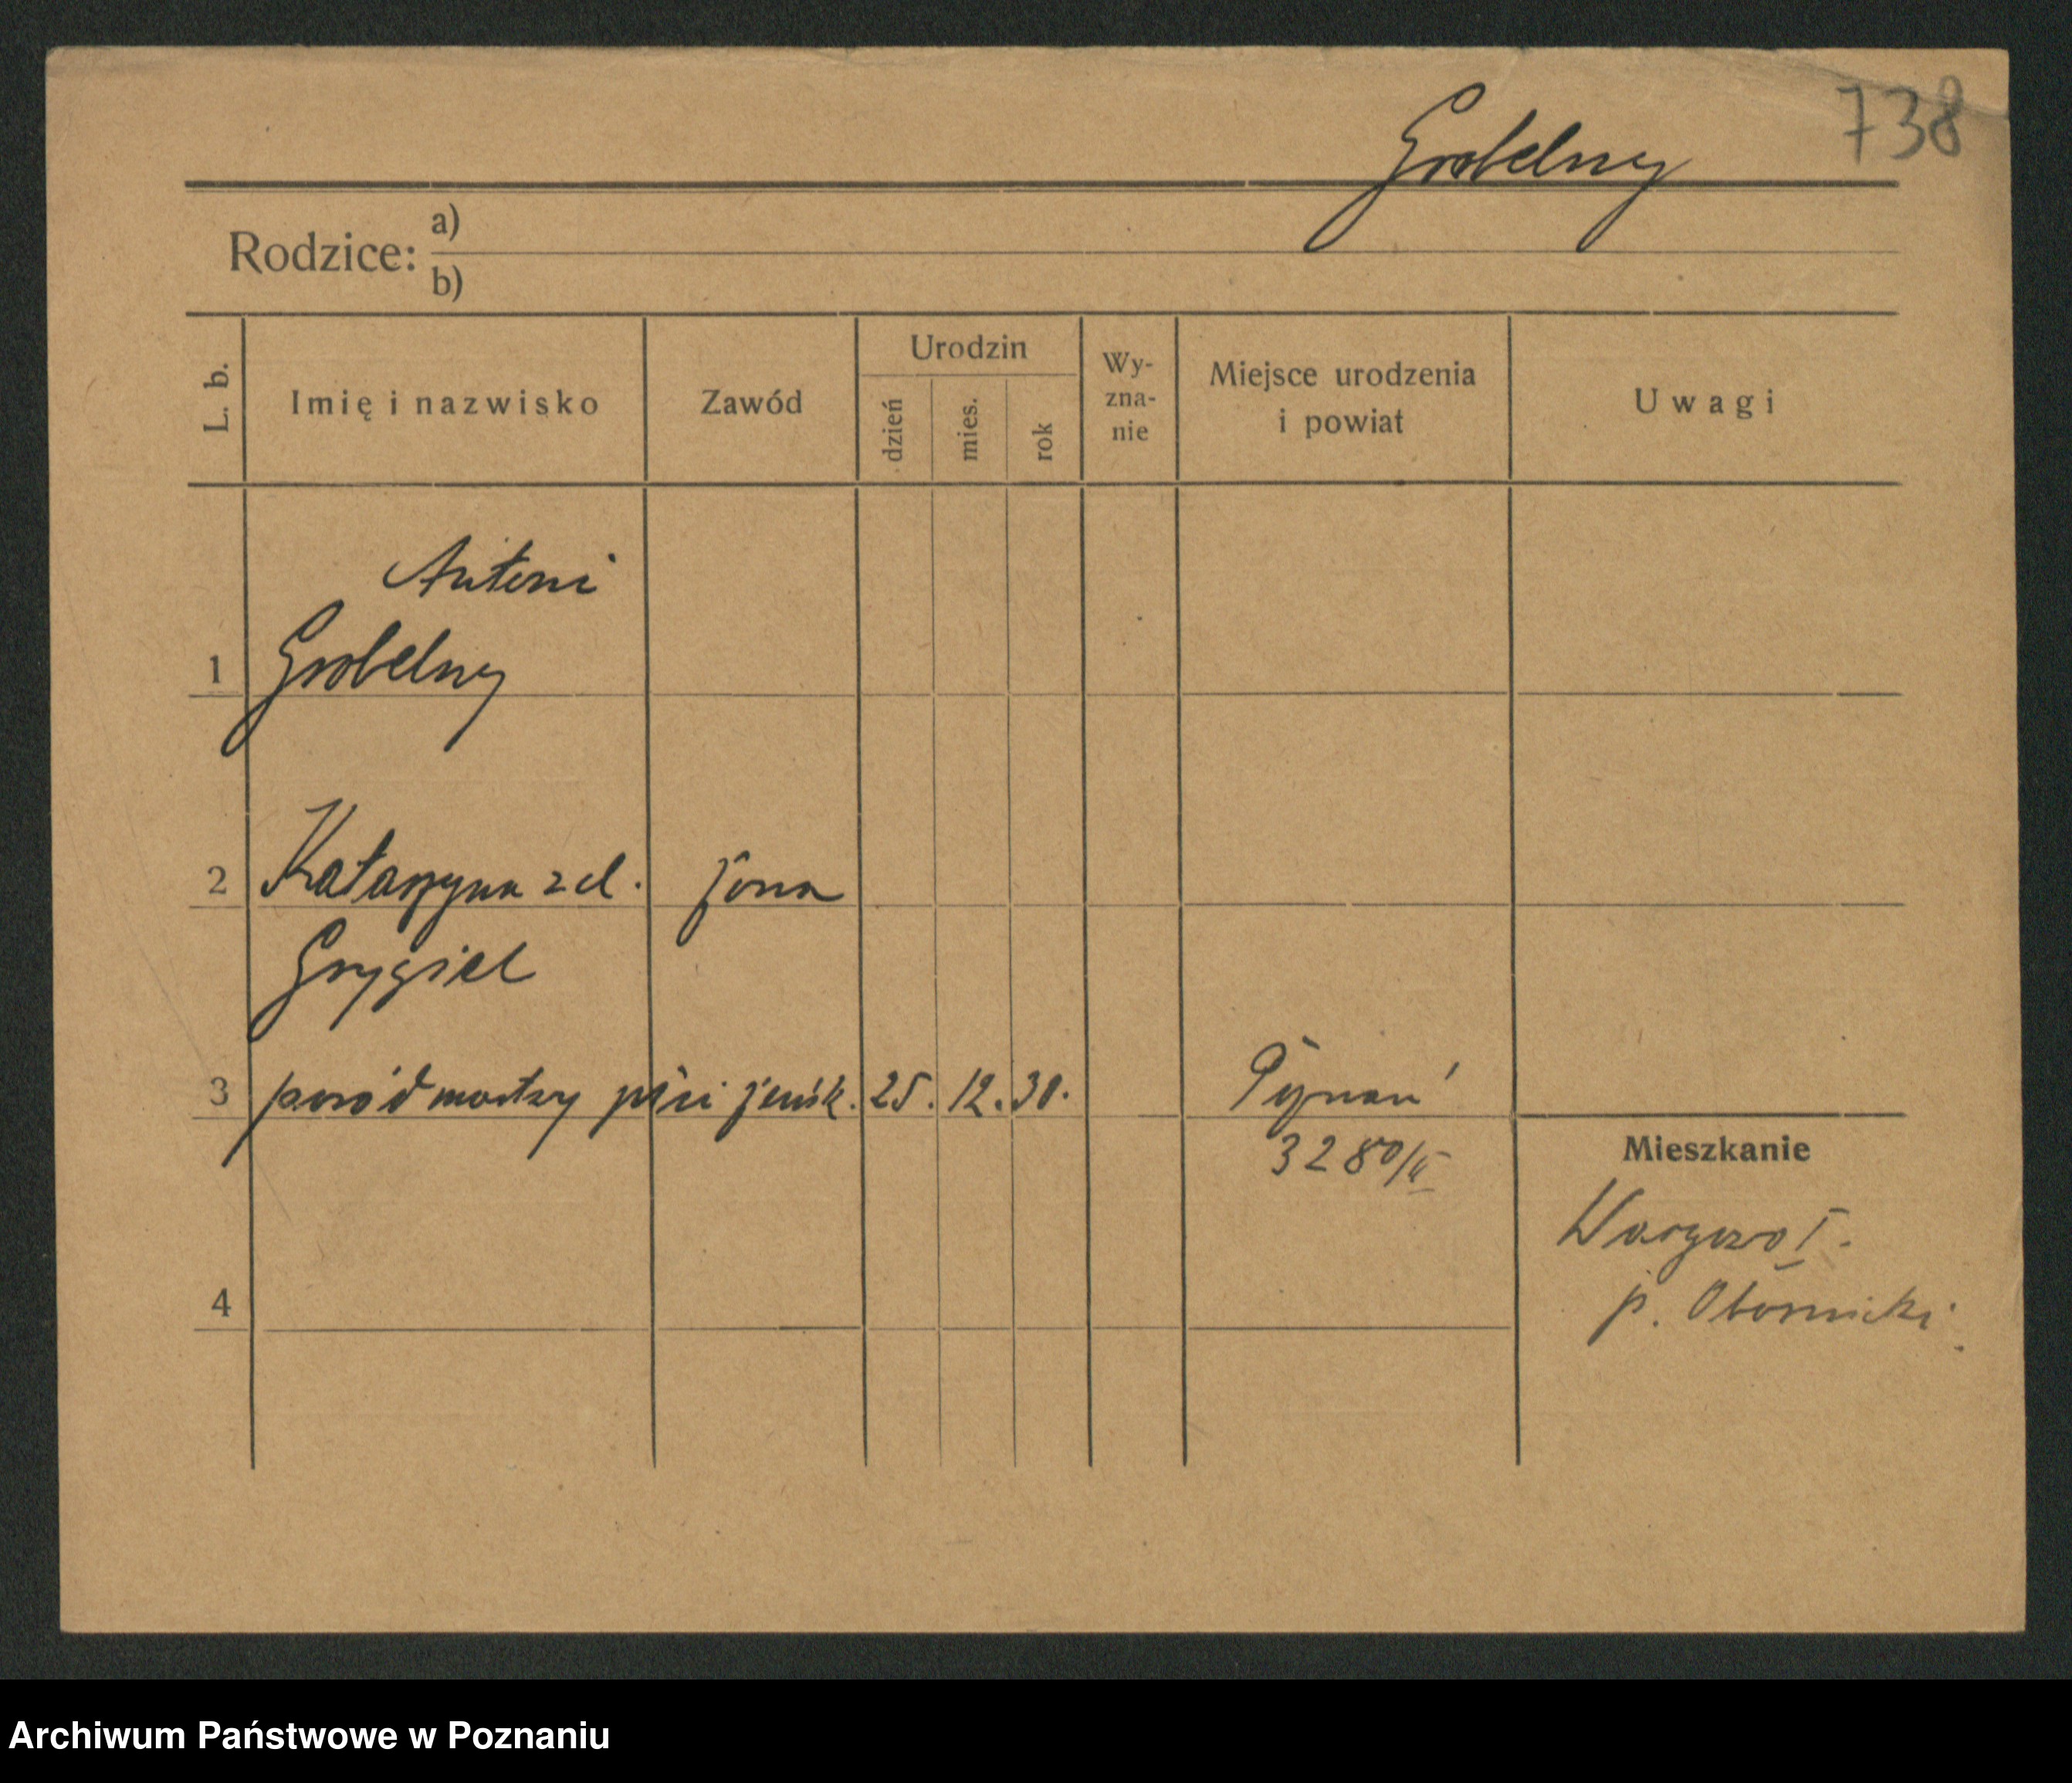 738
Grobelny
Rodzice: a)
b)
L. b. Imię i nazwisko Zawód Urodzin dzień mies. rok Wy-zna-nie Miejsce urodzenia i powiat Uwagi
Antoni
1 Grobelny
2 Katarzyna z d. żona
Grygiel
3 poród martwy płci żeńsk. 25. 12. 30. Poznań
3280/II
Mieszkanie
I.
p. Obornicki
4
Archiwum Państwowe w Poznaniu